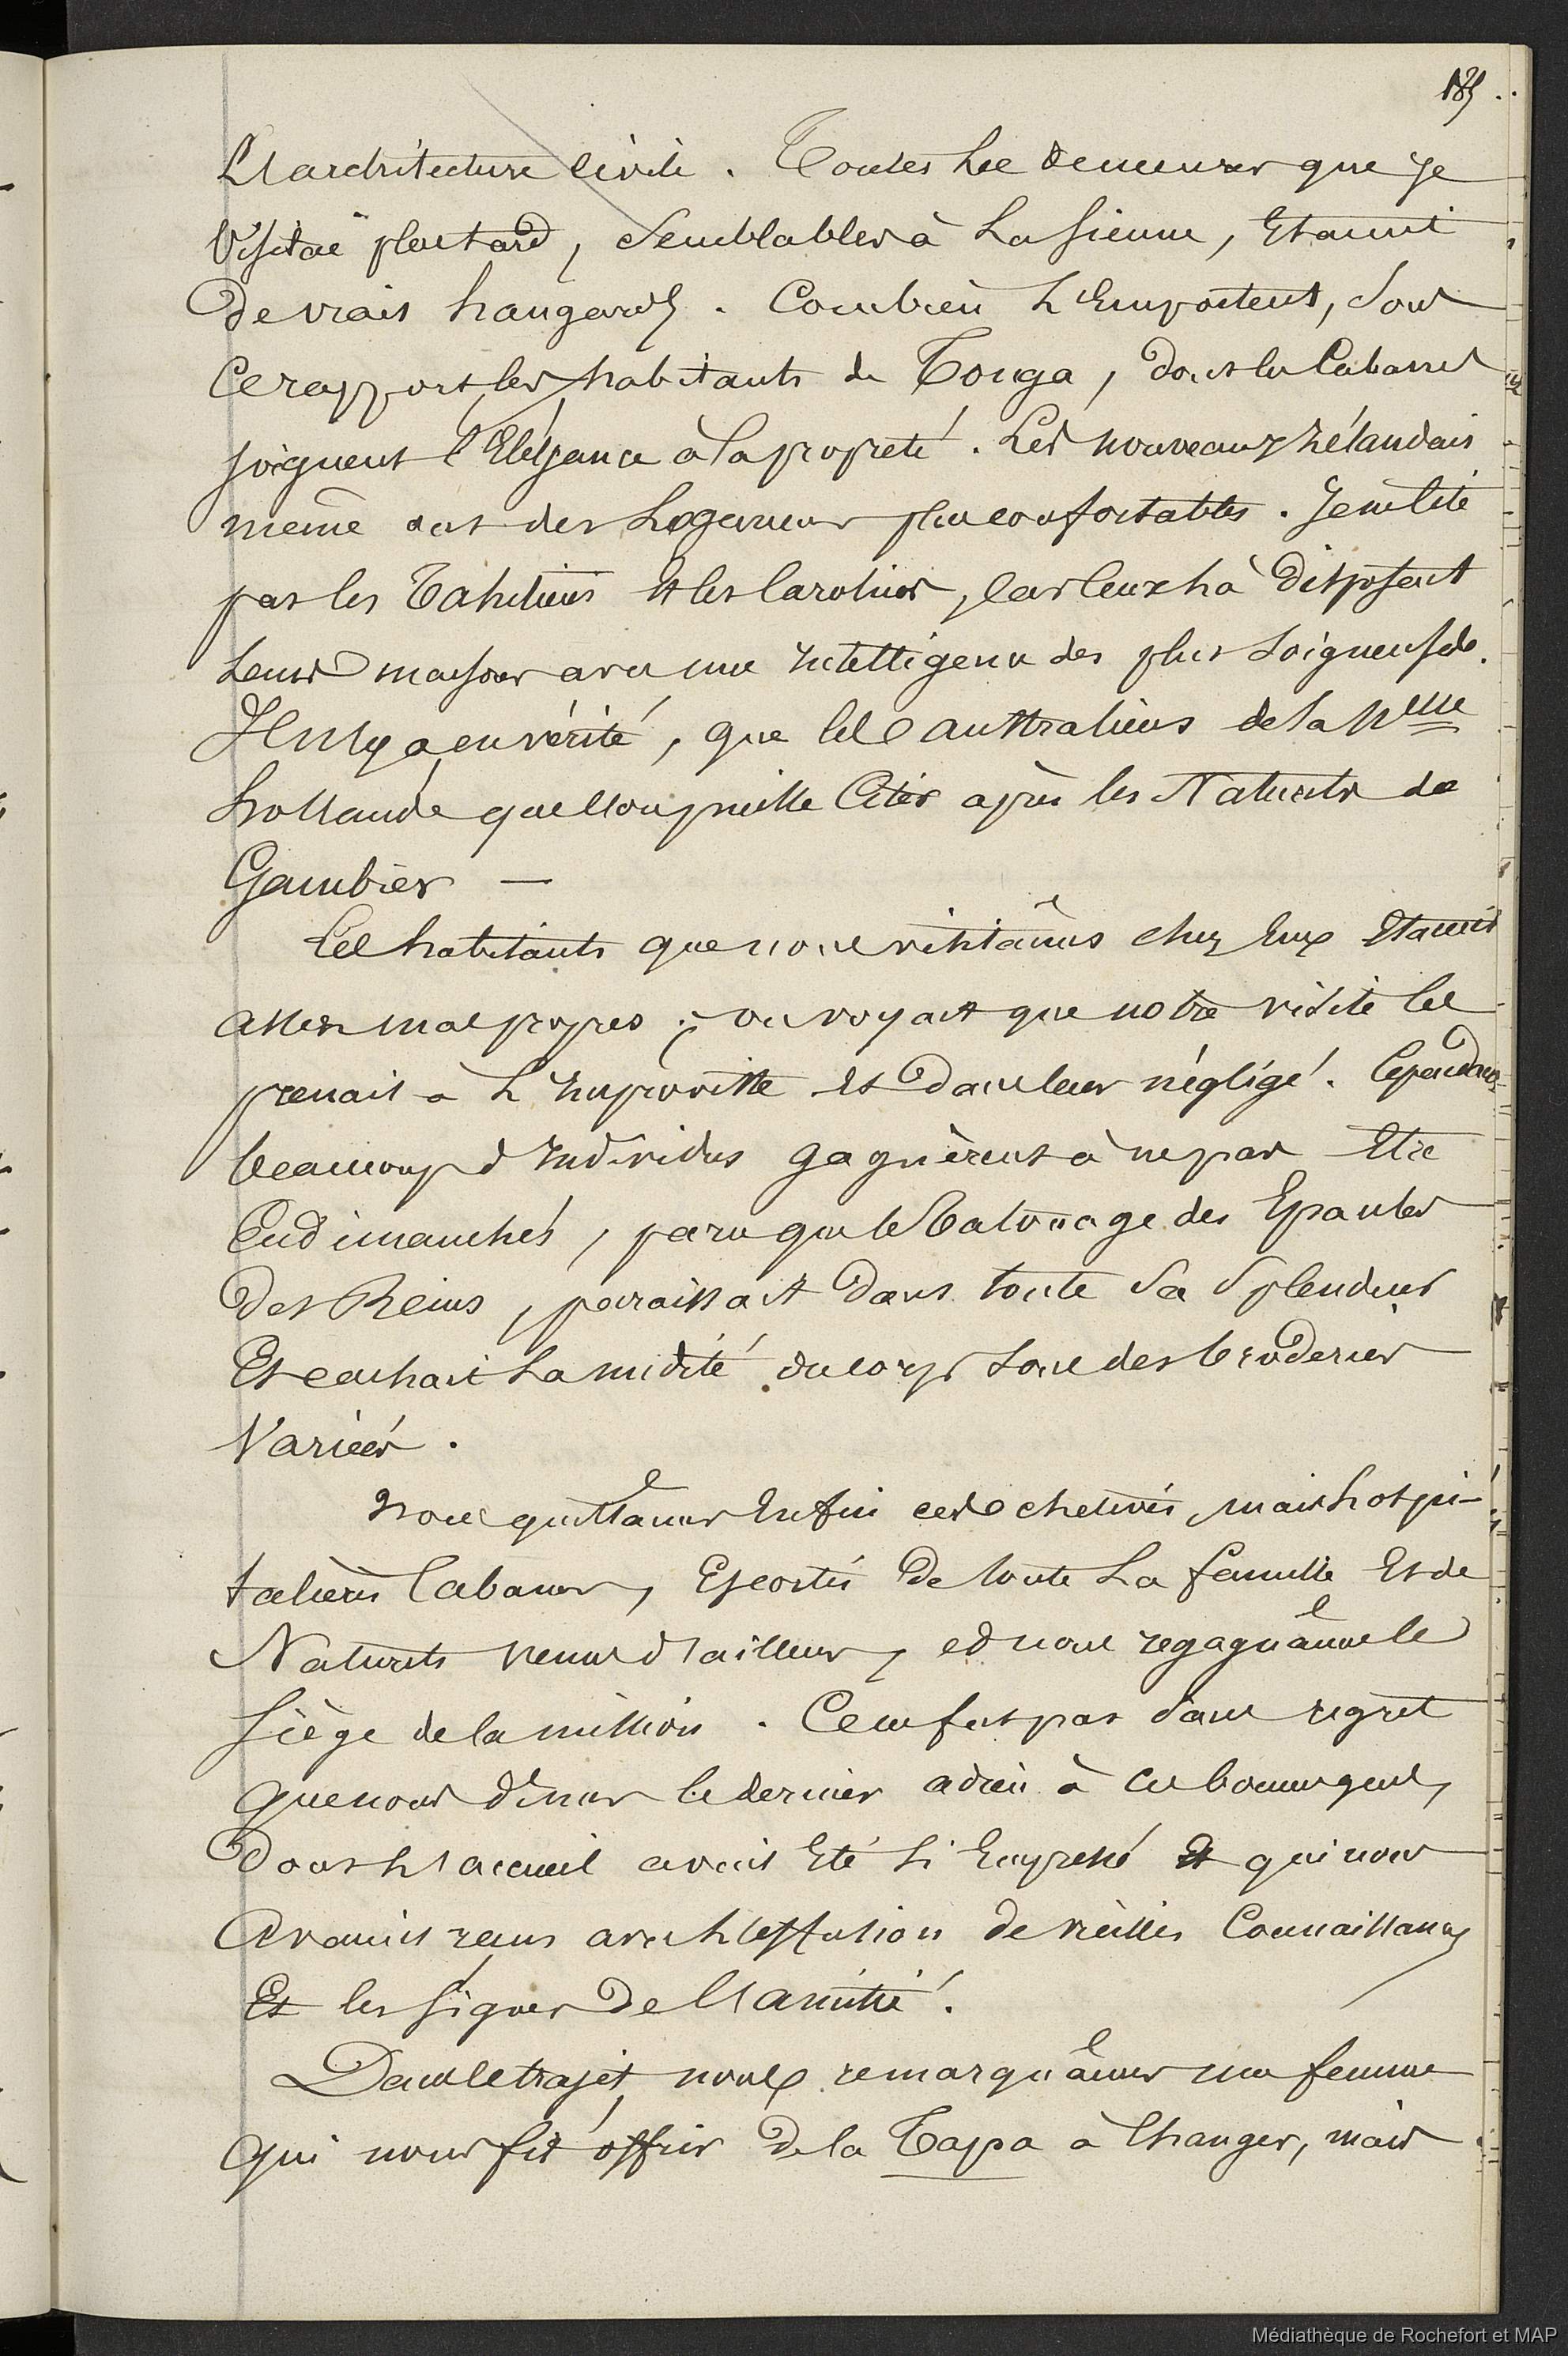 185
L'architecture Civile. Toutes Les demeures que je
Visitai plus tard, Semblables à La Sienne, Etaient
De vrais hangards. Combien L'Emportent, Sous
Ce rapport les habitants de Tonga, dont les Cabanes
joignent l'Elégance à la propreté. Les nouveaux zélandais
même ont des Logements plus confortables. Je ne Cite
pas les Tahitiens et les Carolins, Car Ceux là disposent
Leurs maisons avec une intelligence des plus Soigneuses.
Il n'y a en vérité, que les australiens de la Nlle
hollande que l'on puisse Citer après les Naturels de
Gambier —
Les habitants que nous visitâmes chez Eux Etaient
assez malpropres ; on voyait que notre visite les
prenait à L'improviste et dans leur négligé. Cependant
beaucoup d'individus gagnèrent à ne pas Etre
Endimanchés, parce que le tatouage des Epaules
Des Reins, paraissait Dans toute Sa Splendeur
Et cachait La nudité du corps Sous des broderies
Variées.
Nous quittâmes Enfin ces chétives, mais hospi-
talières Cabanes, Escortés De toute La famille Et de
Naturels venus d'ailleurs, et nous regagnâmes le
Siège de la mission. Ce ne fut pas Sans regret
que nous dîmes le dernier adieu à ces bonnes gens,
Dont L'accueil avait Eté Si Empressé Et qui nous
Avaient reçus avec L'effusion de vieilles Connaissances
Et les Signes De L'amitié.
Dans le trajet, nous remarquâmes une femme
Qui nous fit offrir De la Tapa à Changer, mais
Médiathèque de Rochefort et MAP